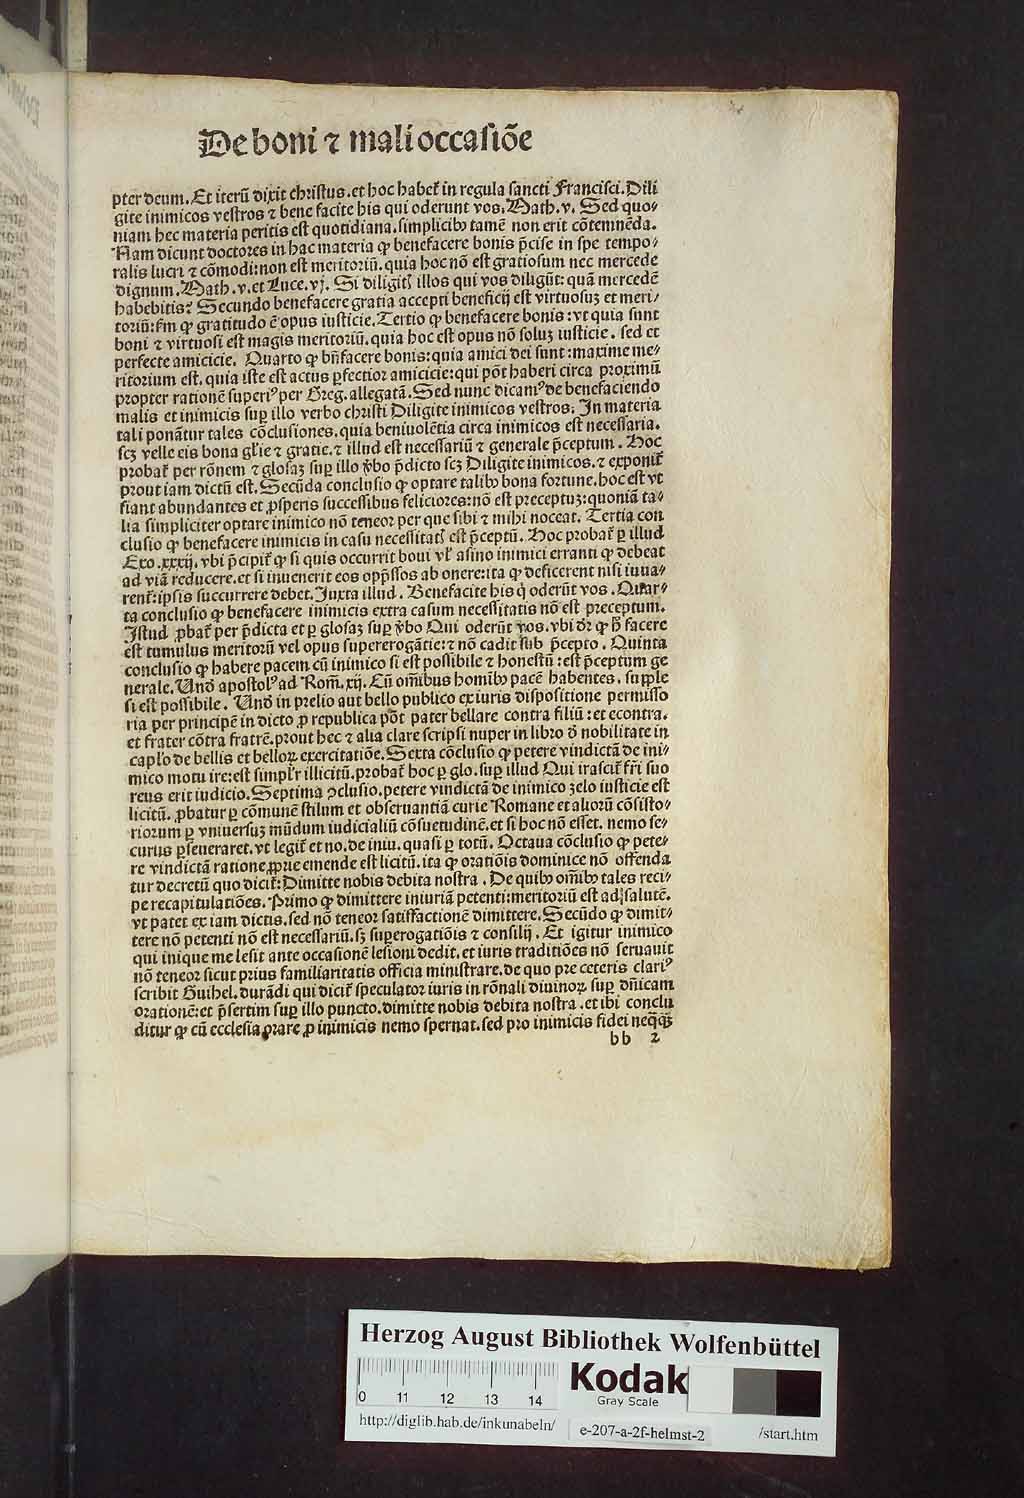 De boni ⁊ mali occasiõe
pter deum. Et iterũ dixit christus. et hoc habet᷑ in regula sancti Francisci. Dili
gite inimicos vestros ⁊ bene facite his qui oderunt vos. Math. v. Sed quo⸗
niam hec materia peritis est quotidiana. simplicibꝰ tamẽ non erit cõtemnẽda.
Nam dicunt doctores in hac materia ꝙ benefacere bonis p̃cise in spe tempo⸗
ralis lucri ⁊ cõmodi: non est meritoriũ. quia hoc nõ est gratiosum nec mercede
dignum. Math. v. et Luce. vj. Si diligitꝭ illos qui vos diligũt: quã mercedẽ
habebitis? Secundo benefacere gratia accepti beneficij est virtuosuꝫ et meri⸗
toriũ: fm ꝙ gratitudo ẽ opus iusticie. Tertio ꝙ benefacere bonis: vt quia sunt
boni ⁊ virtuosi est magis meritoriũ. quia hoc est opus nõ soluꝫ iusticie. sed et
perfecte amicicie. Quarto ꝙ bñfacere bonis: quia amici dei sunt: maxime me⸗
ritorium est. quia iste est actus ꝑfectior amicicie: qui põt haberi circa proximũ
propter rationẽ superiꝰ per Greg. allegatã. Sed nunc dicamꝰ de benefaciendo
malis et inimicis suꝑ illo verbo christi Diligite inimicos vestros. In materia
tali ponãtur tales cõclusiones. quia beniuolẽtia circa inimicos est necessaria.
scꝫ velle eis bona gl'ie ⁊ gratie. ⁊ illud est necessariũ ⁊ generale p̃ceptum. Hoc
probat᷑ per rõnem ⁊ glosaꝫ suꝑ illo v̾bo p̃dicto scꝫ Diligite inimicos. ⁊ exponit᷑
prout iam dictũ est. Secũda conclusio ꝙ optare talibꝰ bona fortune. hoc est vt
fiant abundantes et ꝓsperis successibus feliciores: nõ est preceptuꝫ: quoniã ta⸗
lia simpliciter optare inimico nõ teneor per que sibi ⁊ mihi noceat. Tertia con
clusio ꝙ benefacere inimicis in casu necessitatꝭ est p̃ceptũ. Hoc probat᷑ ꝑ illud
Exo. xxxij. vbi p̃cipit᷑ ꝙ si quis occurrit boui vl' asino inimici erranti ꝙ debeat
ad viã reducere. et si inuenerit eos opp̃ssos ab onere: ita ꝙ deficerent nisi iuua⸗
rent᷑: ipsis succurrere debet. Juxta illud. Benefacite his q̇ oderũt vos. Quar⸗
ta conclusio ꝙ benefacere inimicis extra casum necessitatis nõ est preceptum.
Istud ꝓbat᷑ per p̃dicta et ꝑ glosaꝫ suꝑ v̾bo Qui oderũt vos. vbi dr̃ ꝙ bñ facere
est tumulus meritorũ vel opus supererogãtie: ⁊ nõ cadit sub p̃cepto. Quinta
conclusio ꝙ habere pacem cũ inimico si est possibile ⁊ honestũ: est p̃ceptum ge
nerale. Vnd̃ apostolꝰ ad Rom̃. xij. Cũ om̃ibus homĩbꝰ pacẽ habentes. supple
si est possibile. Vnd̃ in prelio aut bello publico ex iuris dispositione permisso
ria per principẽ in dicto ꝓ republica põt pater bellare contra filiũ: et econtra.
et frater cõtra fratrẽ. prout hec ⁊ alia clare scripsi nuper in libro d̃ nobilitate in
capl'o de bellis et belloꝝ exercitatiõe. Sexta cõclusio ꝙ petere vindictã de ini⸗
mico motu ire: est simpl'r illicitũ. probat᷑ hoc ꝑ glo. suꝑ illud Qui irascit᷑ fr̃i suo
reus erit iudicio. Septima ꝯclusio. petere vindictã de inimico zelo iusticie est
licitũ. ꝓbatur ꝑ cõmunẽ stilum et obseruantiã curie Romane et aliorũ cõsisto⸗
riorum ꝑ vniuersuꝫ mũdum iudicialiũ cõsuetudinẽ. et si hoc nõ esset. nemo se⸗
curus ꝑseueraret. vt legit᷑ et no. de iniu. quasi ꝑ totũ. Octaua cõclusio ꝙ pete⸗
re vindictã ratione ꝓprie emende est licitũ. ita ꝙ oratiõis dominice nõ offenda
tur decretũ quo dicit᷑: Dimitte nobis debita nostra. De quibꝰ om̃ibꝰ tales reci⸗
pe recapitulatiões. Primo ꝙ dimittere iniuriã petenti: meritoriũ est ad salutẽ.
vt patet ex iam dictis. sed nõ teneor satisfactionẽ dimittere. Secũdo ꝙ dimit⸗
tere nõ petenti nõ est necessariũ. sꝫ suꝑerogatiõis ⁊ consilij. Et igitur inimico
qui inique me lesit ante occasionẽ lesioni dedit. et iuris traditiões nõ seruauit
nõ teneor sicut prius familiaritatis officia ministrare. de quo pre ceteris clariꝰ
scribit Guihel. durãdi qui dicit᷑ speculator iuris in rõnali diuinoꝝ suꝑ dñicam
orationẽ: et p̃sertim suꝑ illo puncto. dimitte nobis debita nostra. et ibi conclu
ditur ꝙ cũ ecclesia orare ꝓ inimicis nemo spernat. sed pro inimicis fidei neq̃q̃ꝫ
bb 2
Herzog August Bibliothek Wolfenbüttel
0 11 12 13 14
Kodak
Gray Scale
http://diglib.hab.de/inkunabeln/ e-207-a-2f-helmst-2 /start.htm